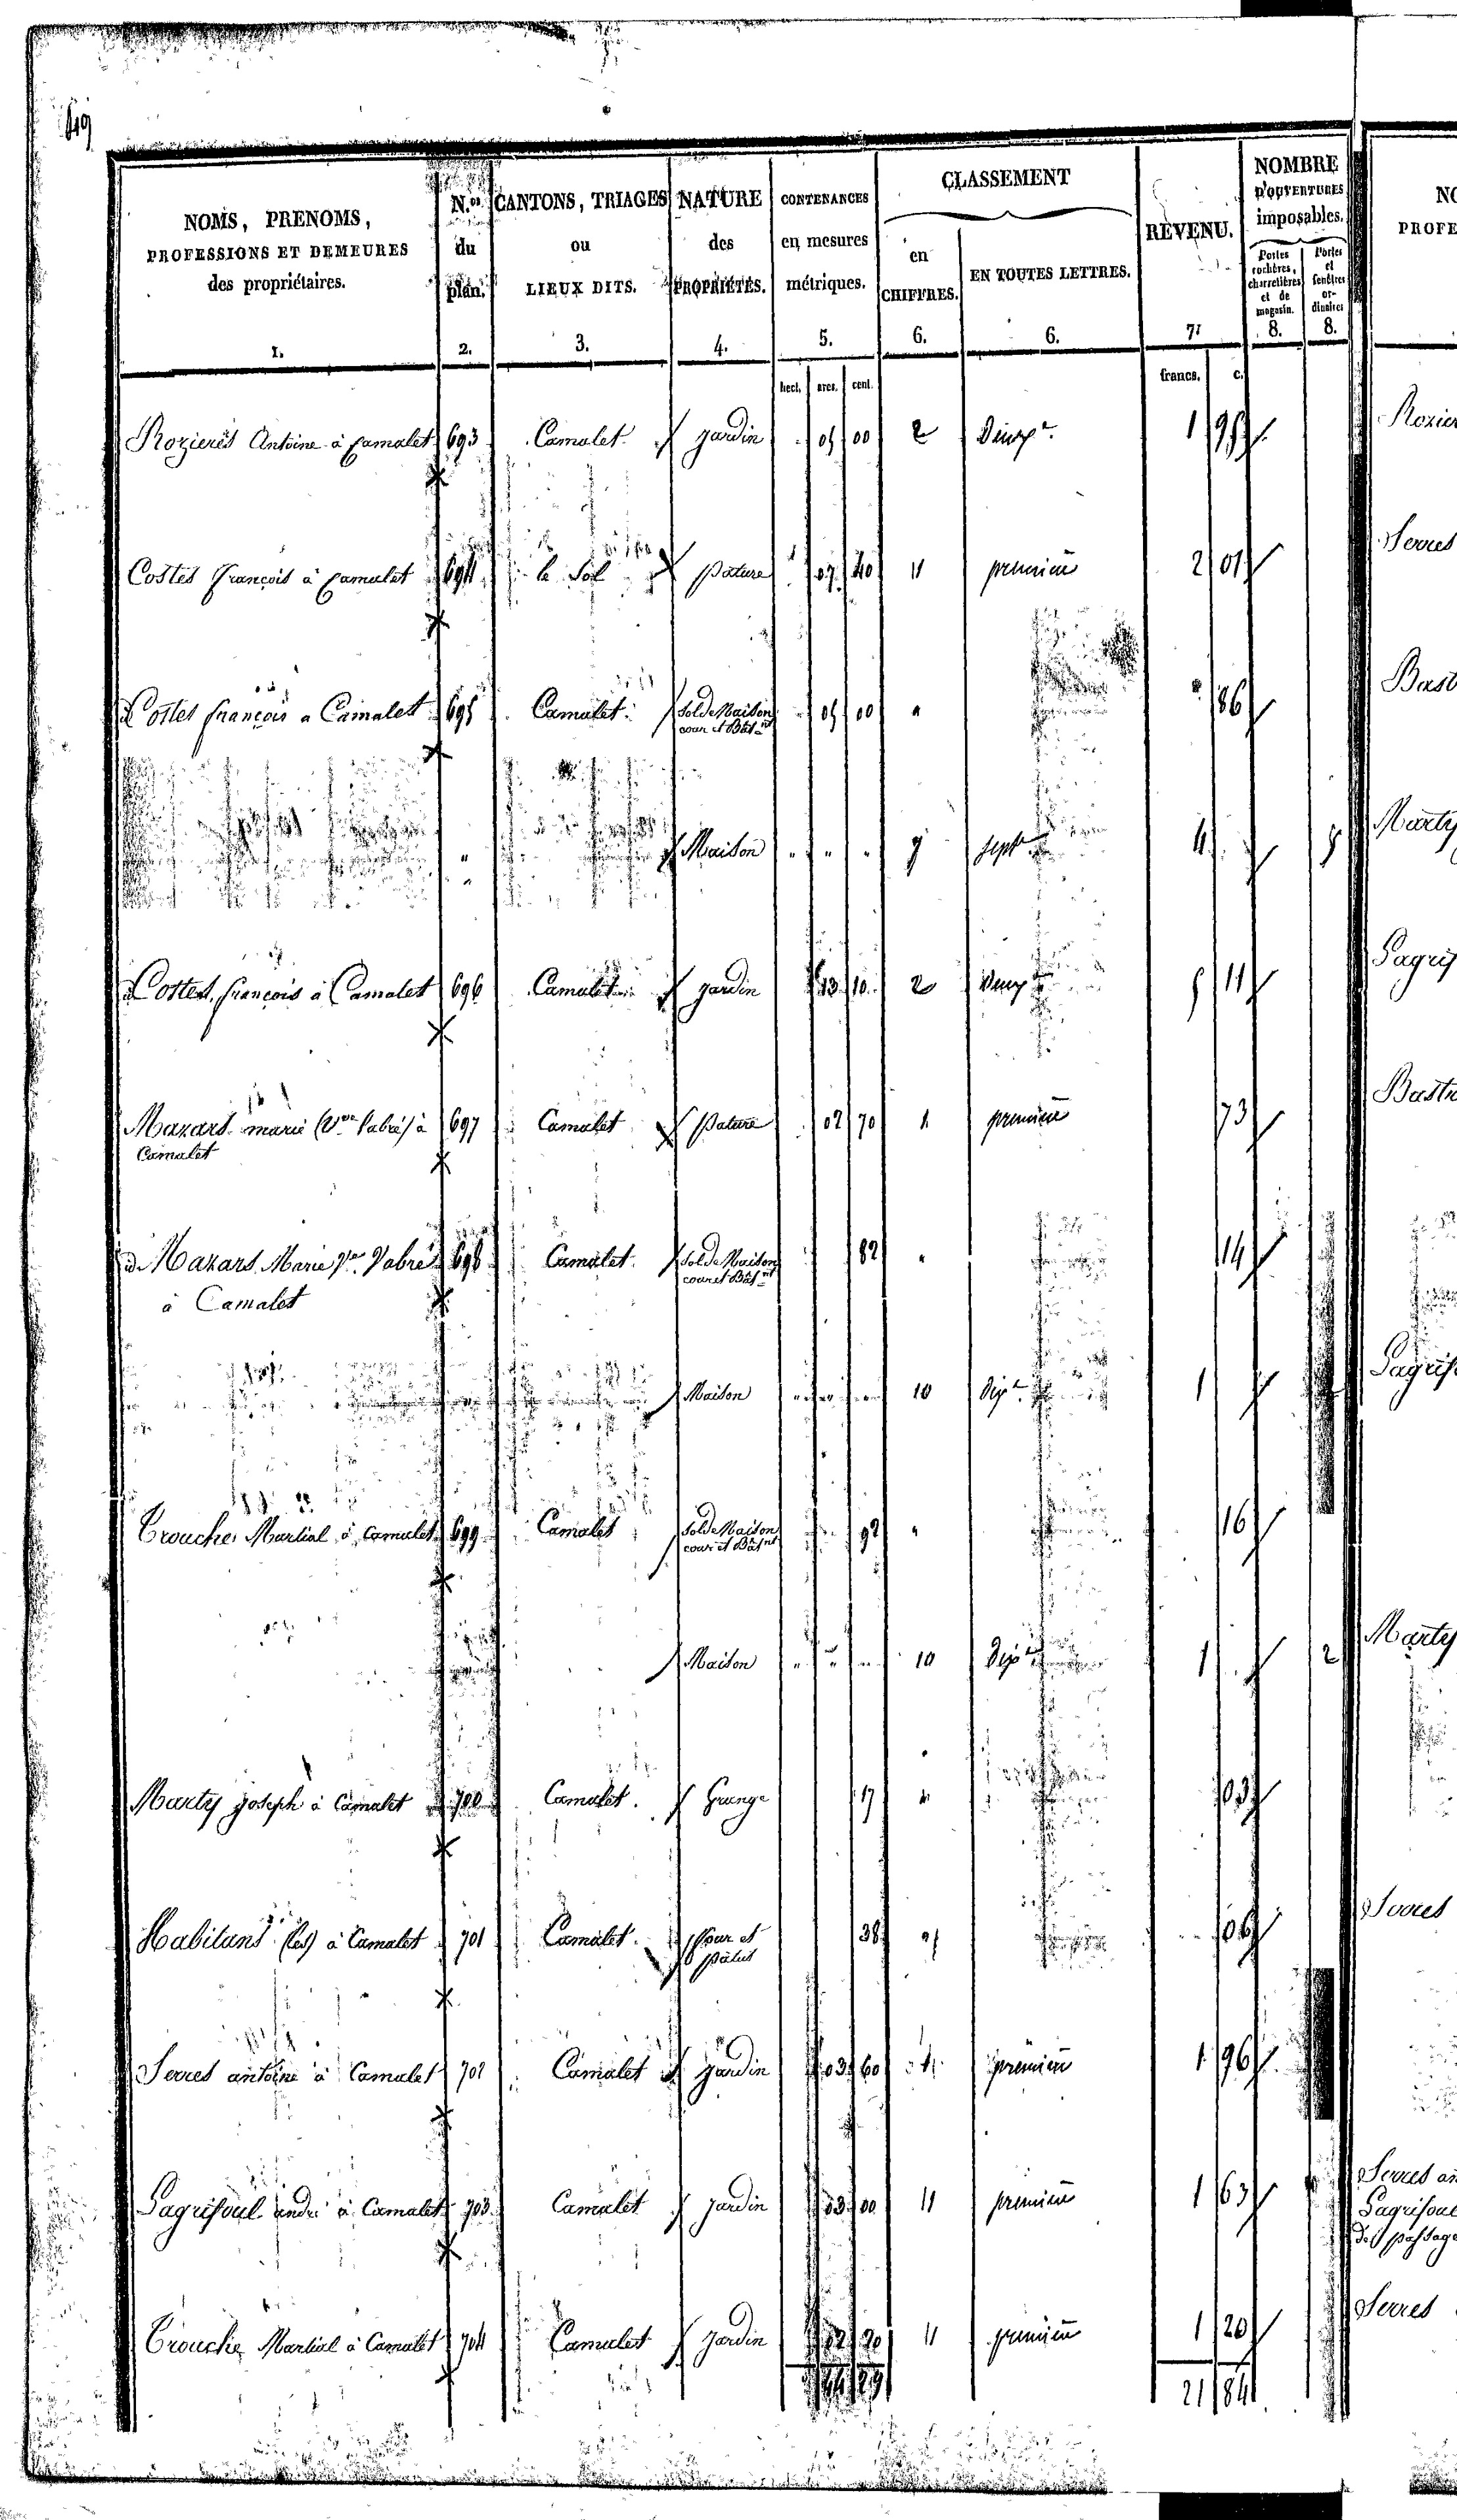 49
NOMS, PRENOMS,
PROFESSIONS ET DEMEURES
des propriétaires.
1.
N.os
du
plan.
2.
CANTONS, TRIAGES
ou
LIEUX DITS.
3.
NATURE
des
PROPRIÉTÉS.
4.
CONTENANCES
en mesures
métriques.
5.
CLASSEMENT
en
CHIFFRES.
6.
EN TOUTES LETTRES.
6.
REVENU.
7.
NOMBRE
D'OUVERTURES
imposables.
Portes
cochères,
charretières
et de
magasin.
8.
Portes
et
fenêtres
or-
dinaires
8.
NO
PROFE
hect. ares. cent. francs. c.
Rozieres Antoine à Camalet 693 Camalet jardin 05 00 2 Deuxe. 1 95 Rozier
Costes françois à Camalet 694 le Sol pature 07 40 1 premiere 2 01 Serres
Costes françois a Camalet 695 Camalet Sol de Maison 05 00 " 86 Bast
cour et Bâtnt
" Maison " " " 7 septe 4 Marty
Costes françois à Camalet 696 Camalet jardin 13 10 2 Deuxe 5 11 Pagris
Mazars marie (Vve Vabre) à 697 Camalet pature 02 70 1 premiere 73 Bast
Camalet
Mazars Marie Vve Vabre 698 Camalet Sol de Maison 82 " 14
à Camalet cour et Bâtnt
Maison " " " 10 Dixe 1 Pagris
Crouche Martial à Camalet 699 Camalet Sol de Maison 92 " 16
cour et Bâtnt
Maison " " " 10 Dixe 1 2 Marty
Marty joseph à Camalet 700 Camalet Grange 17 " 03
Habitans (les) à Camalet 701 Camalet four et 38 " 06 Serres
patus
Serres antoine à Camalet 702 Camalet jardin 03 60 1 premiere 1 96
Pagrisoul andré à Camalet 703 Camalet jardin 03 00 1 premiere 1 63 Serres an
Pagrisoul
passage
Crouche Martial à Camalet 704 Camalet jardin 02 20 1 premiere 1 20 Serres
21 84